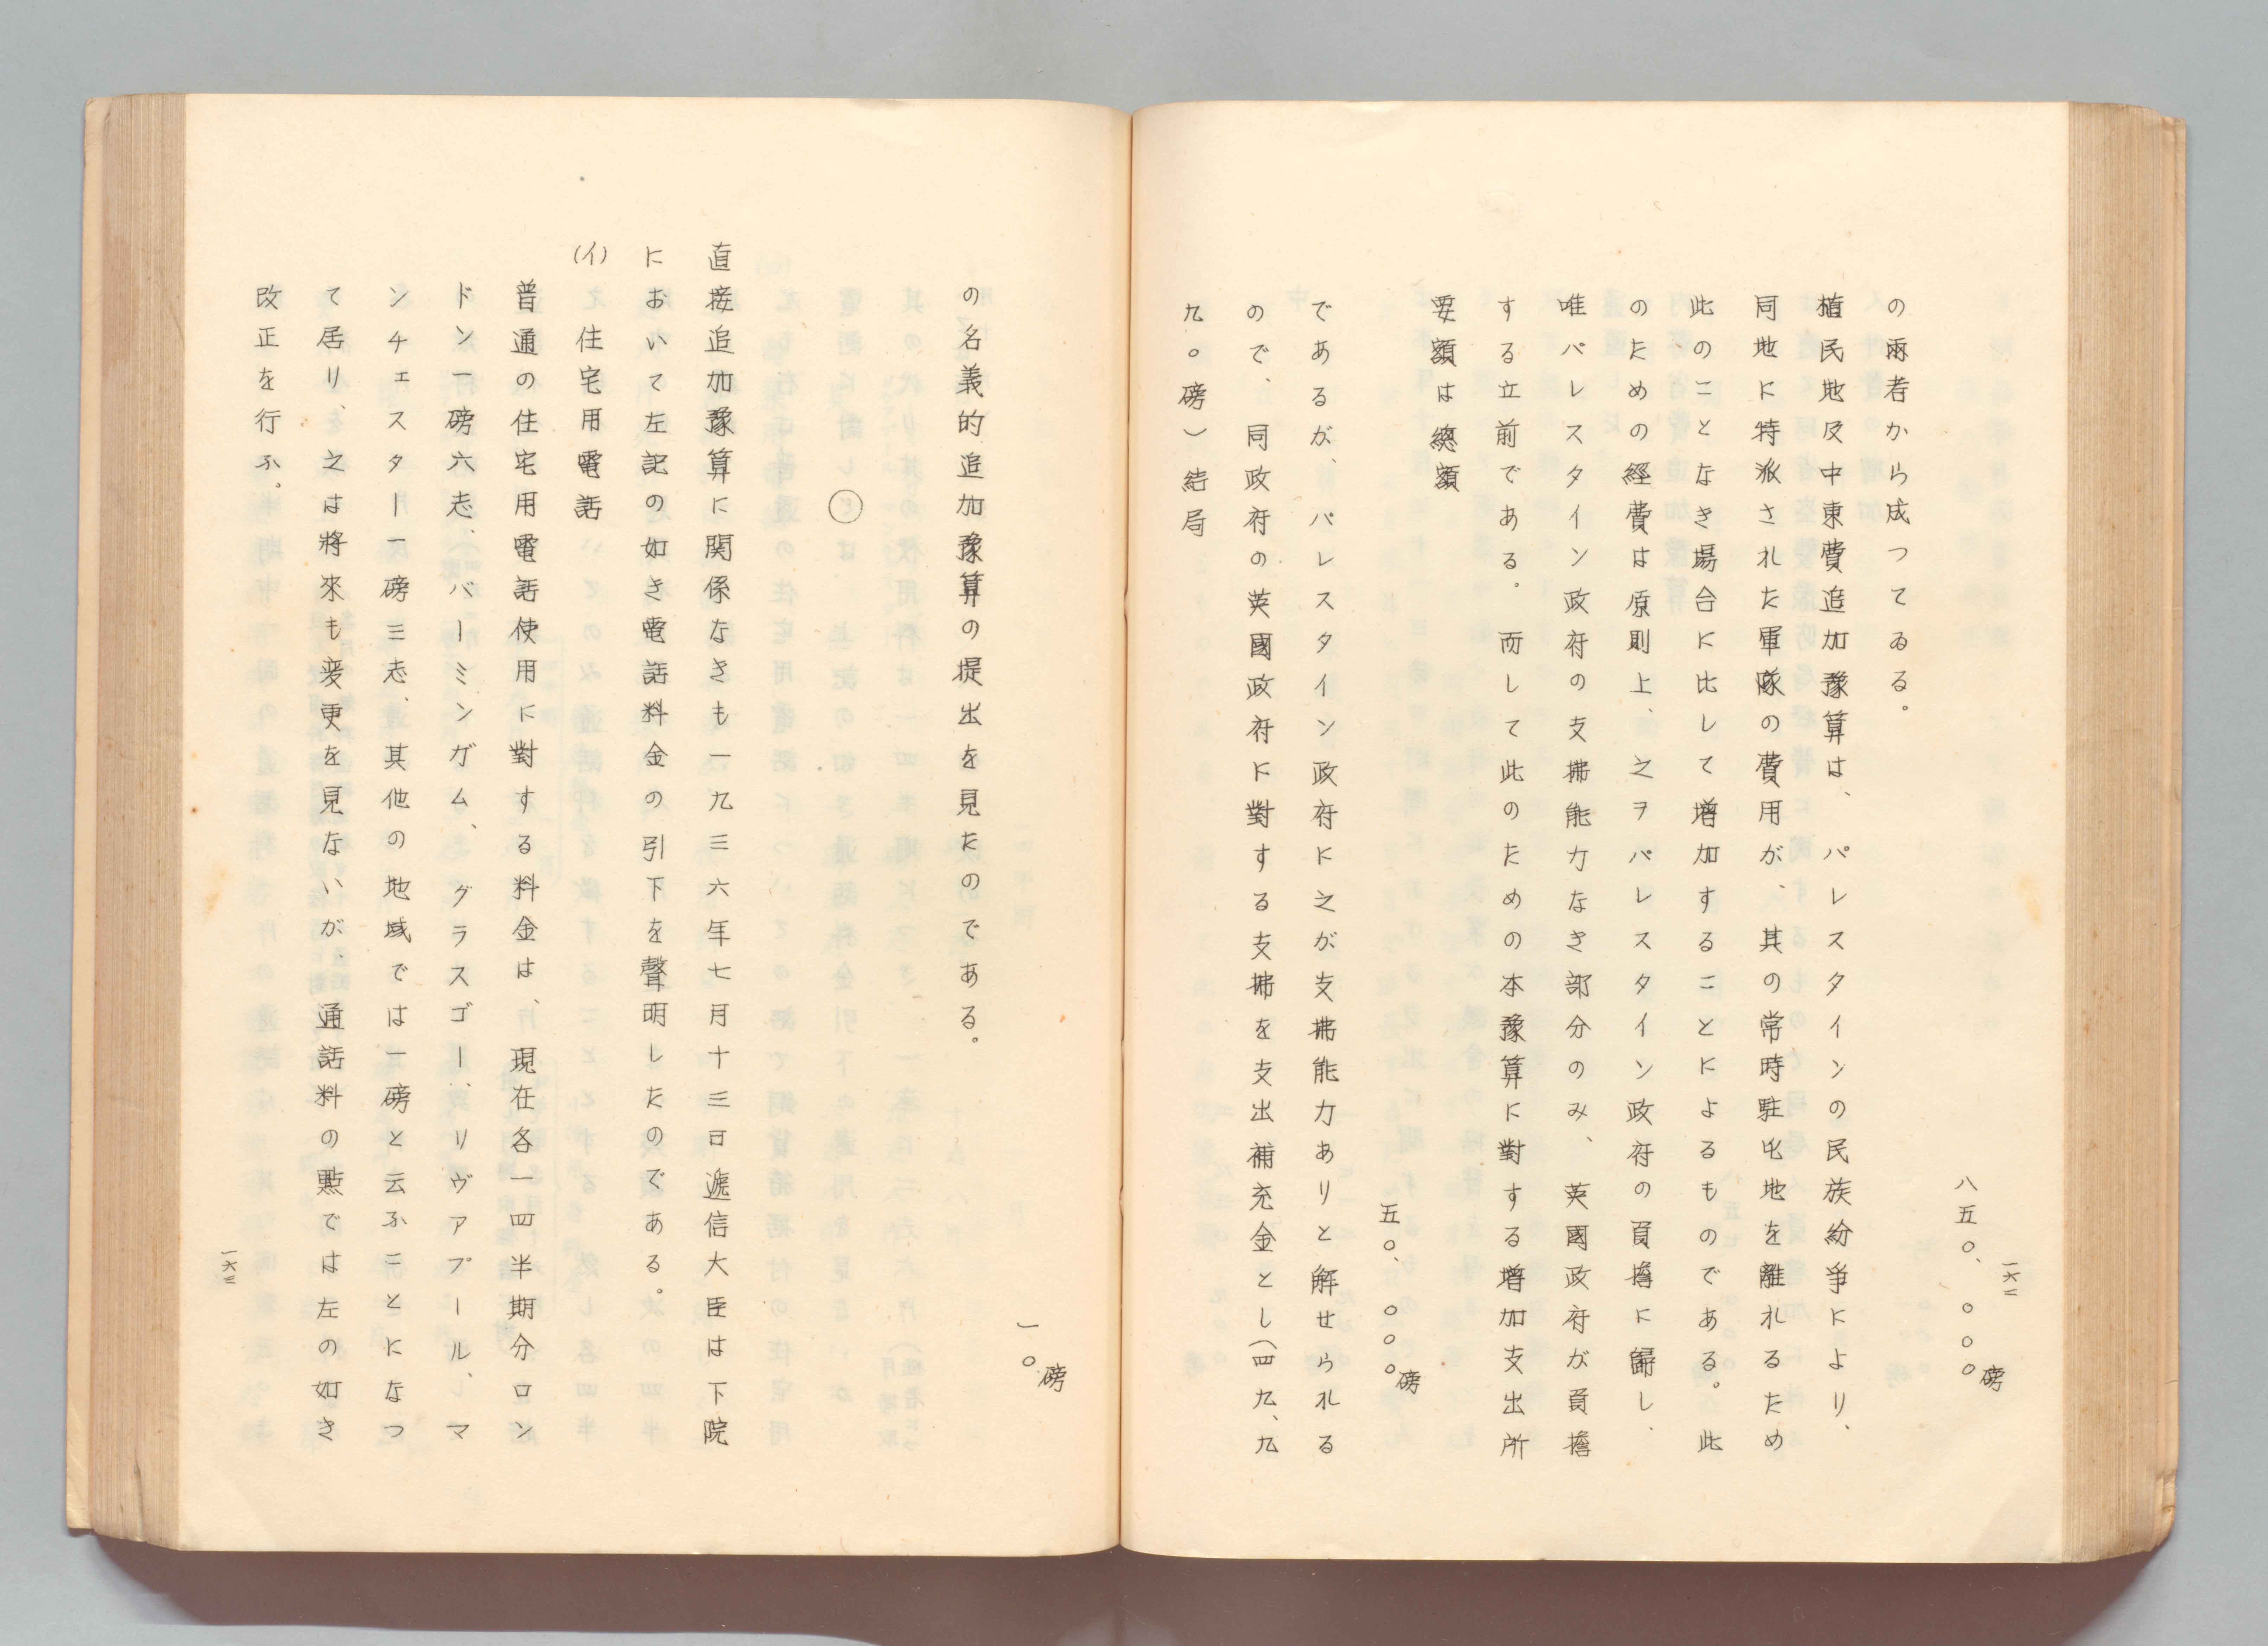 一六二
八五〇、〇〇〇磅
の兩者から成つてゐる。
植民地及中東費追加豫算は、パレスタインの民族紛爭により、
同地に特派された軍隊の費用が、其の常時駐屯地を離れるため
此のことなき場合に比して増加することによるものである。此
のための經費は原則上、之ヲパレスタイン政府の負擔に歸し、
唯パレスタイン政府の支拂能力なき部分のみ、英國政府が負擔
する立前である。而して此のための本豫算に對する増加支出所
要額は總額
五〇、〇〇〇磅
であるが、パレスタイン政府に之が支拂能力ありと解せられる
ので、同政府の英國政府に對する支拂を支出補充金とし(四九、九
九〇磅)結局
一〇磅
の名義的追加豫算の提出を見たのである。
○
直接追加豫算に関係なきも一九三六年七月十三日遞信大臣は下院
において左記の如き電話料金の引下を聲明したのである。
(イ)住宅用電話
普通の住宅用電話使用に對する料金は、現在各一四半期分ロン
ドン一磅六志、バーミンガム、グラスゴー、リヴアプール、マ
ンチェスター一磅三志、其他の地域では一磅と云ふことになつ
て居り、之は將來も変更を見ないが、通話料の點では左の如き
改正を行ふ。
一六三